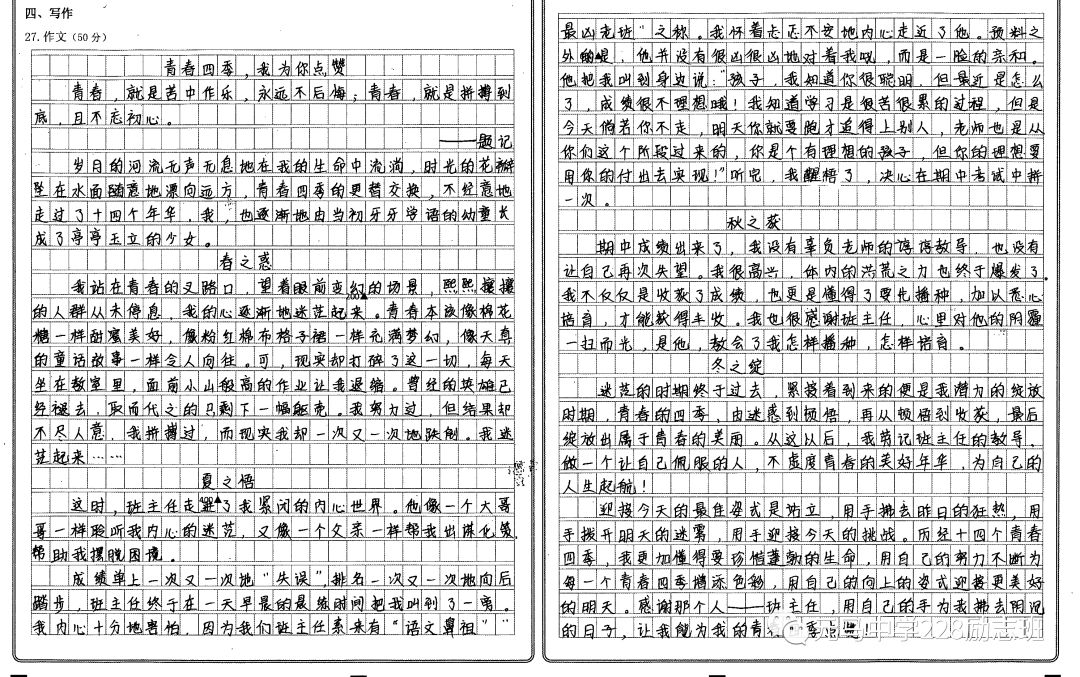 四、写作
27.作文(50分)
青春四季，我为你点赞
青春，就是苦中作乐，永远不后悔；青春，就是拼搏到
底，且不忘初心。
——题记
岁月的河流无声无息地在我的生命中流淌，时光的花瓣
坠在水面随意地漂向远方，青春四季的更替交换，不经意地
走过了十四个年华，我，也逐渐地由当初牙牙学语的幼童长
成了亭亭玉立的少女。
春之惑
我站在青春的叉路口，望着眼前变幻的场景，熙熙攘攘
200▲
的人群从未停息，我的心逐渐地迷茫起来。青春本该像棉花
糖一样甜蜜美好，像粉红棉布格子裙一样充满梦幻，像天真
的童话故事一样令人向往。可，现实却打碎了这一切，每天
坐在教室里，面前小山般高的作业让我退缩。曾经的英雄已
经褪去，取而代之的只剩下一幅躯壳。我努力过，但结果却
不尽人意，我拼搏过，而现实我却一次又一次地跌倒。我迷
茫起来……
夏之悟
400▲
这时，班主任走进了我紧闭的内心世界。他像一个大哥
哥一样聆听我内心的迷茫，又像一个父亲一样帮我出谋化策
帮助我摆脱困境。
成绩单上一次又一次地“失误”，排名一次又一次地向后
踏步，班主任终于在一天早晨的最终时间把我叫到了一旁。
我内心十分地害怕，因为我们班主任素来有“语文鼻祖”“
最凶老班”之称。我怀着忐忑不安地内心走近了他。预料之
外的是，他并没有很凶很凶地对着我吼，而是一脸的亲和。
他把我叫到身边说：“孩子，我知道你很聪明，但最近是怎么
了，成绩很不理想哦！我知道学习是很苦很累的过程，但是
今天倘若你不走，明天你就要跑才追得上别人，老师也是从
你们这个阶段过来的，你是个有理想的孩子，但你的理想要
用你的付出去实现！”听完，我醒悟了，决心在期中考试中拼
一次。
秋之获
期中成绩出来了，我没有辜负老师的谆谆教导，也没有
让自己再次失望。我很高兴，体内的洪荒之力也终于爆发了。
我不仅仅是收获了成绩，也更是懂得了要先播种，加以悉心
培育，才能获得丰收。我也很感谢班主任，心里对他的阴霾
一扫而光，是他，教会了我怎样播种，怎样培育。
冬之绽
迷茫的时期终于过去，紧接着到来的便是我潜力的绽放
时期，青春的四季，由迷惑到顿悟，再从顿悟到收获，最后
绽放出属于青春的美丽。从这以后，我劳记班主任的教导，
做一个让自己佩服的人，不虚度青春的美好年华，为自己的
人生起航！
迎接今天的最佳姿式是站立，用手拂去昨日的狂热，用
手拨开明天的迷雾，用手迎接今天的挑战。历经十四个青春
四季，我更加懂得要珍惜蓬勃的生命，用自己的努力不断为
每一个青春四季增添色彩，用自己的向上的姿式迎接更美好
的明天。感谢那个人——班主任，用自己的手为我拂去阴沉
的日子，让我能为我的青春四季点赞！
中学228励志班